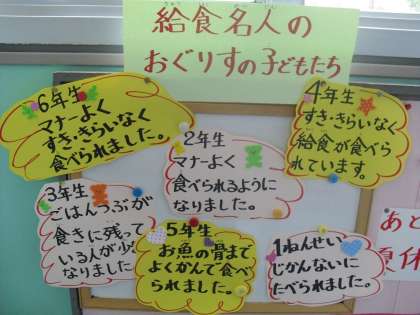 給食名人の
おぐりすの子どもたち
6年生
マナーよく
すき・きらいなく
食べられました。
2年生
マナーよく
食べられるように
なりました。
4年生
すき・きらいなく
給食が食べら
れています。
3年生
ごはんつぶが
食きに残って
いる人が少なく
なりました
5年生
お魚の骨まで
よくかんで食べ
られました。
1ねんせい
じかんないに
たべられました。
あと
夏休